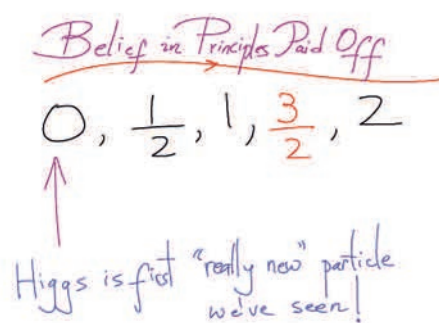 Belief in Principles Paid Off
0, 1/2, 1, 3/2, 2
Higgs is first "really new" particle
we've seen!